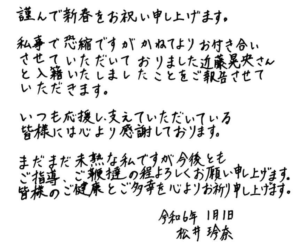 謹んで新春をお祝い申し上げます。
私事で恐縮ですが かねてよりお付き合い
させていただいて おりました近藤晃央さん
と入籍いたしましたことをご報告させて
いただきます。
いつも応援し支えていただいている
皆様には心より感謝しております。
まだまだ未熟な私ですが今後とも
ご指導、ご鞭撻の程よろしくお願い申し上げます。
皆様のご健康とご多幸を心よりお祈り申し上げます。
令和6年 1月1日
松井玲奈